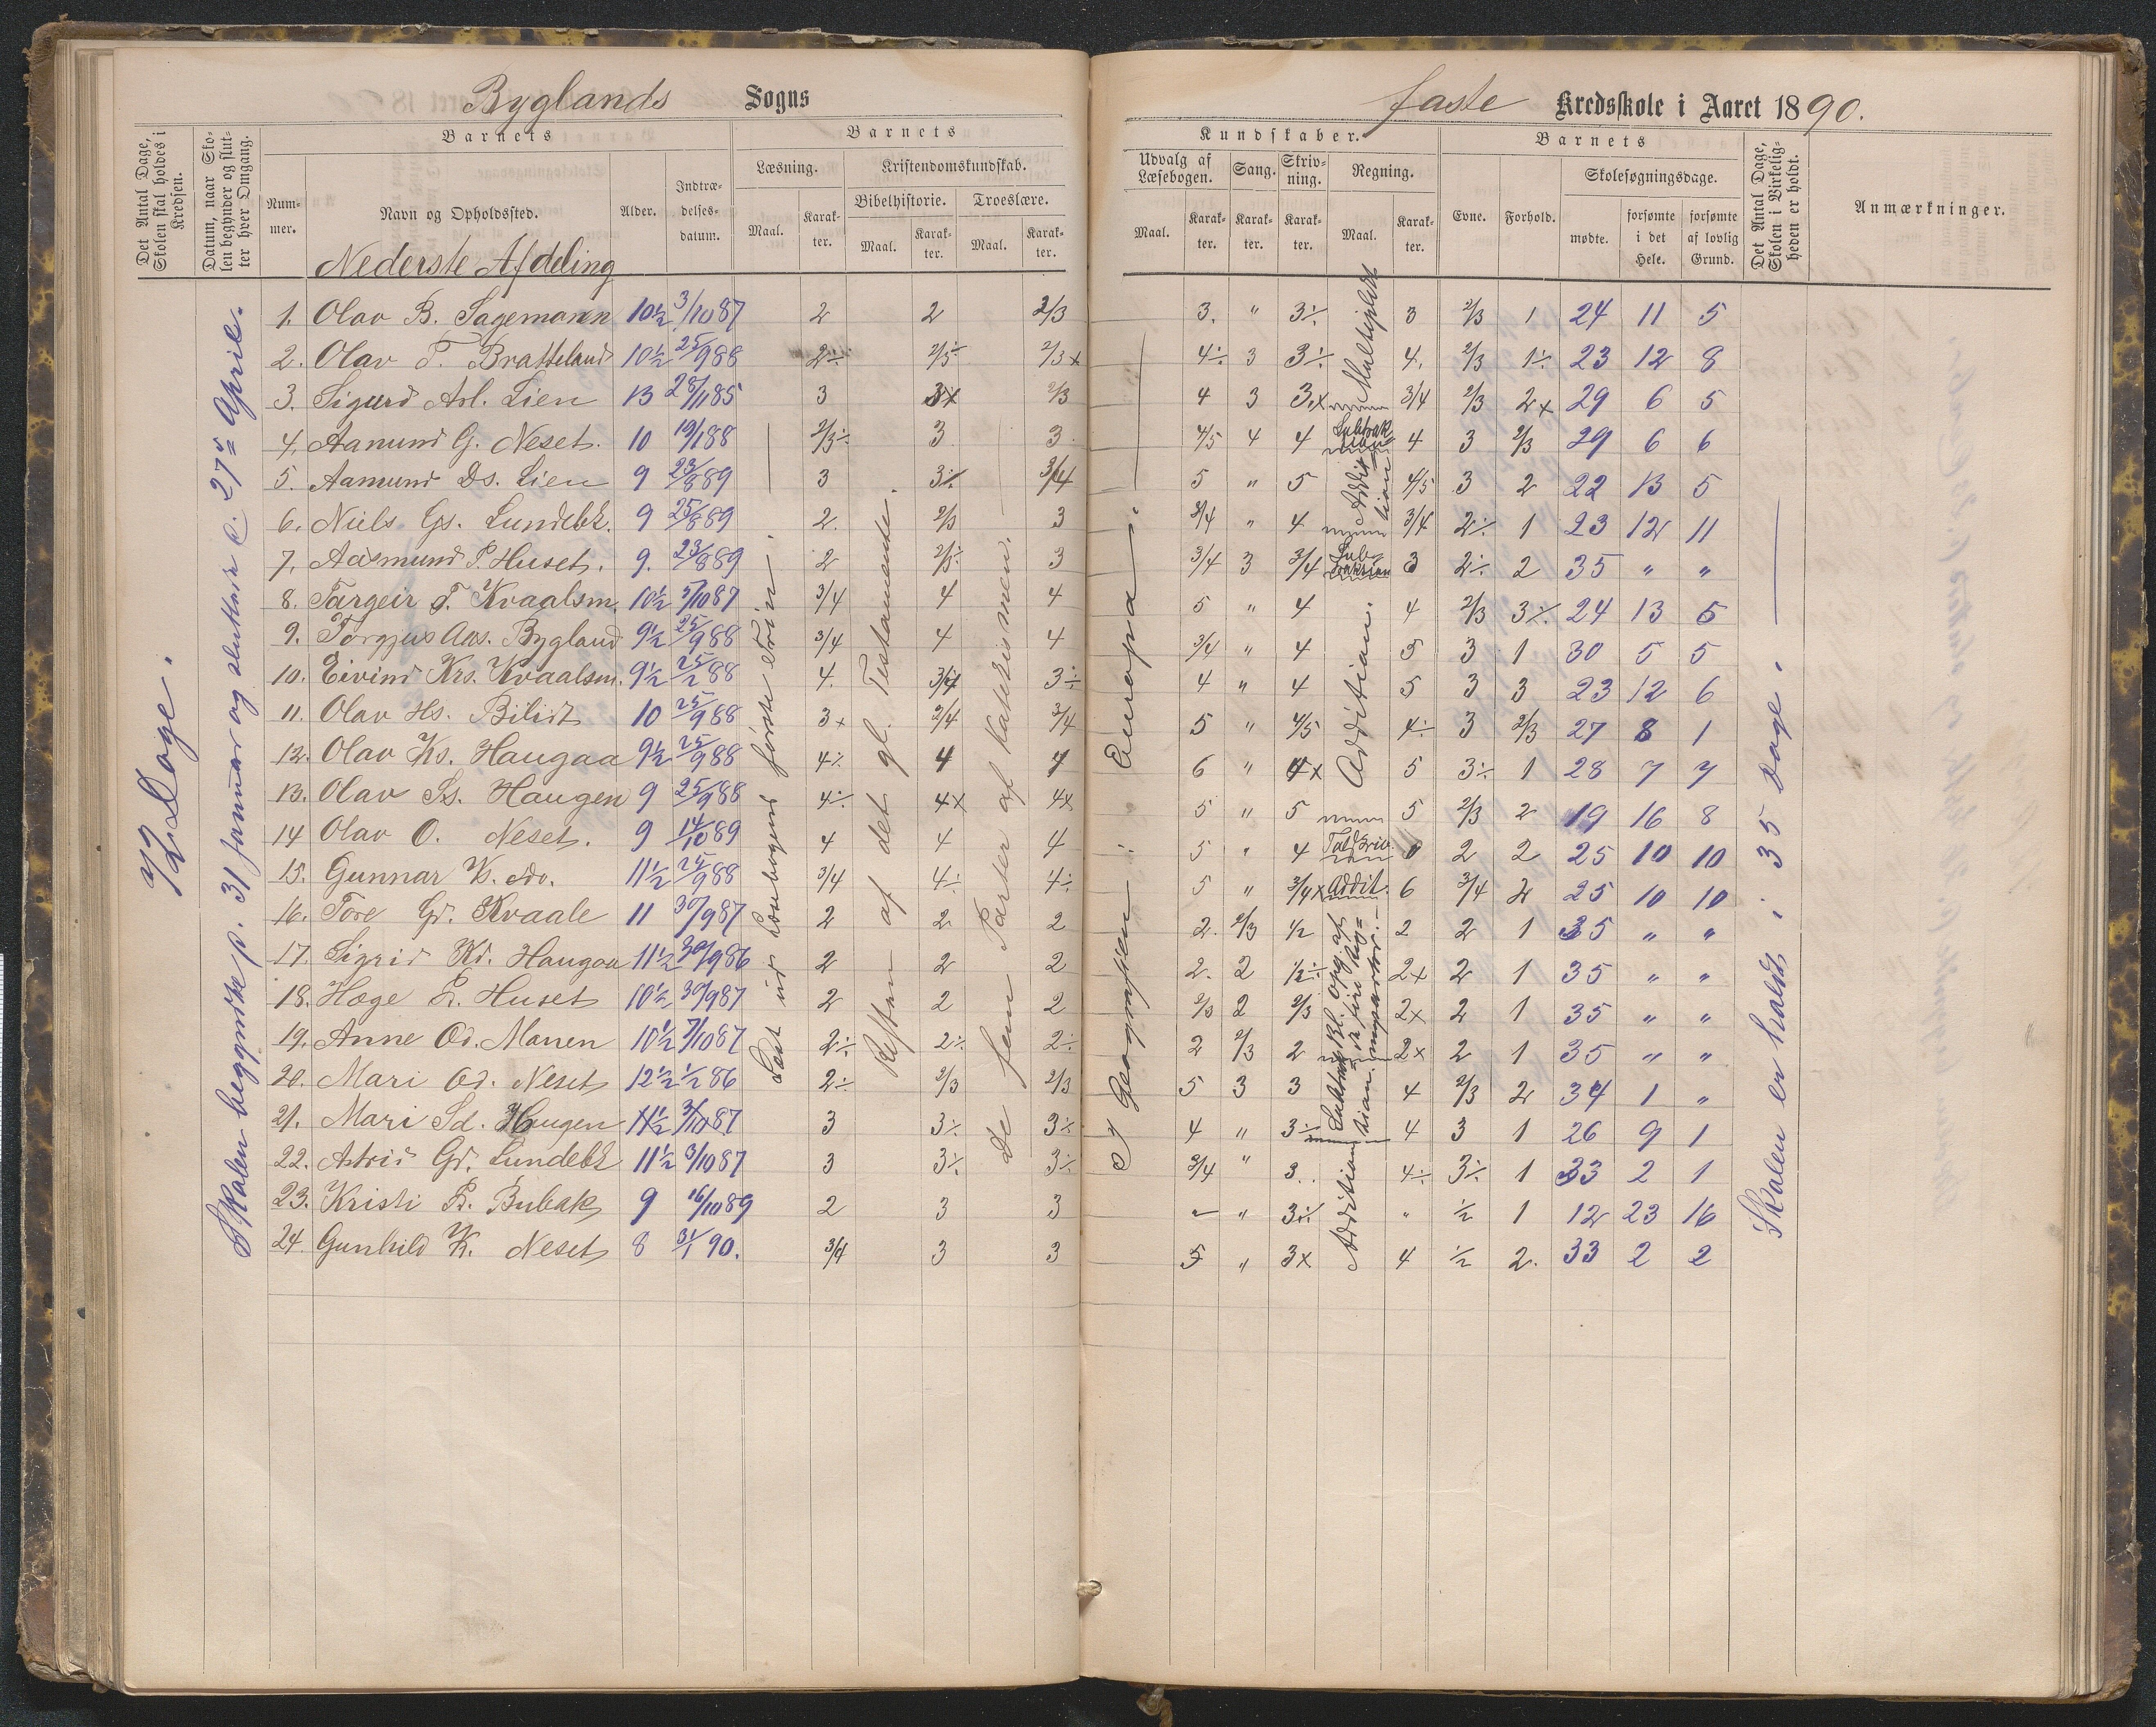 Byglands Sogns
faste Kredsskole i Aaret 1890.
Det Antal Dage, Skolen skal holdes i Kredsen.
Datum, naar Skolen begynder og slutter hver Omgang.
Barnets
Nummer.
Navn og Opholdssted.
Alder.
Indtrædelsesdatum.
Barnets
Læsning.
Maal.
Karakter.
Kristendomskundskab.
Bibelhistorie.
Maal.
Karakter.
Troeslære.
Maal.
Karakter.
Kundskaber.
Udvalg af Læsebogen.
Maal.
Karakter.
Sang.
Karakter.
Skrivning.
Karakter.
Regning.
Maal.
Karakter.
Barnets
Evne.
Forhold.
Skolesøgningsdage.
mødte.
forsømte i det Hele.
forsømte af lovlig Grund.
Det Antal Dage, Skolen i Virkeligheden er holdt.
Anmærkninger.
Nederste Afdeling
72 Dage.
Skolen begyndte p. 31 januar og sluttede d. 27de April.
Læst ud Læsebogens første Trin.
Resten af det gl. Testamente.
De fem Parter af Katekismen.
I Geografien: Europa.
Skolen er holdt i 35 Dage.
1. Olav B. Sagemann 10½ 3/10 87 2 2 2/3 3. " 3÷ 3 2/3 1 24 11 5
2. Olav T. Bratteland 10½ 25/9 88 2÷ 2/3÷ 2/3x 4÷ 3 3÷ 4. 2/3 1÷ 23 12 8
3. Sigurd Asl. Lien 13 28/11 85 3 3x 2/3 4 3 3.x 3/4 2/3 2x 29 6 5
4. Aanund G. Neset. 10 19/1 88 2/3÷ 3 3. 4/5 4 4 4 3 2/3 29 6 6
5. Aamund Ds. Lien 9 23/8 89 3 3÷ 3/4 5 " 5 4/5 3 2 22 13 5
6. Niels Gs. Lundebk. 9 25/8 89 2. 2/3 3 3/4 " 4 3/4 2÷ 1 23 12 11
7. Aasmund P. Huset. 9. 23/8 89 2 2/3÷ 3 3/4 3 3/4 3 2÷ 2 35 " "
8. Targeir T. Kvaalsm. 10½ 3/10 87 3/4 4 4 5 " 4 4 2/3 3÷ 24 13 5
9. Torgjus Aas. Bygland 9½ 25/9 88 3/4 4 4 3/4 " 4 5 3 1 30 5 5
10. Eivind Krs. Kvaalsm. 9½ 25/2 88 4. 3/4 3÷ 4 " 4 5 3 3 23 12 6
11. Olav Hs. Bilidt 10 25/9 88 3x 3/4 3/4 5 " 4/5 4÷ 3 2/3 27 8 1
12. Olav Ks. Haugaa 9½ 25/9 88 4÷ 4 4 6 " 4x 5 3÷ 1 28 7 7
13. Olav Ss. Haugen 9 25/9 88 4÷ 4x 4x 5 " 5 5 2/3 2 19 16 8
14 Olav O. Neset. 9 14/10 89 4 4 4 5 " 4 2 2 25 10 10
15. Gunnar K. do. 11½ 25/9 88 3/4 4÷ 4÷ 5 " 3/4x Addit. 6 3/4 2 25 10 10
16. Tore Gd. Kvaale 11 30/9 87 2 2 2 2. 2/3 ½ 2 2 1 35 " "
17. Sigrid Kd. Haugaa 11½ 30/9 86 2 2 2 2. 2 ½÷ 2x 2 1 35 " "
18. Hæge P. Huset 10½ 30/9 87 2 2 2 2/3 2 2/3 2x 2 1 35 " "
19. Anne Od. Manen 10½ 7/10 87 2÷ 2÷ 2÷ 2 2/3 2 2x 2 1 35 " "
20. Mari Od. Neset 12½ ½ 86 2÷ 2/3 2/3 5 3 3 4 2/3 2 34 1 "
21. Mari Sd. Haugen 11½ 3/10 87 3 3÷ 3÷ 4 " 3÷ 4 3 1 26 9 1
22. Astrid Gd. Lundebk 11½ 3/10 87 3 3÷ 3÷ 3/4 " 3. 4÷ 3÷ 1 33 2 1
23. Kristi P. Bubak 9 16/10 89 2 3 3 " " 3÷ " ½ 1 12 23 16
24. Gunhild K. Neset 8 31/1 90. 3/4 3 3 5 " 3x 4 ½ 2. 33 2 2
Multiplikt
Subtraktion
Addition
Subtraktion
Addition.
Talskriv.
Subtraktion.
Addition